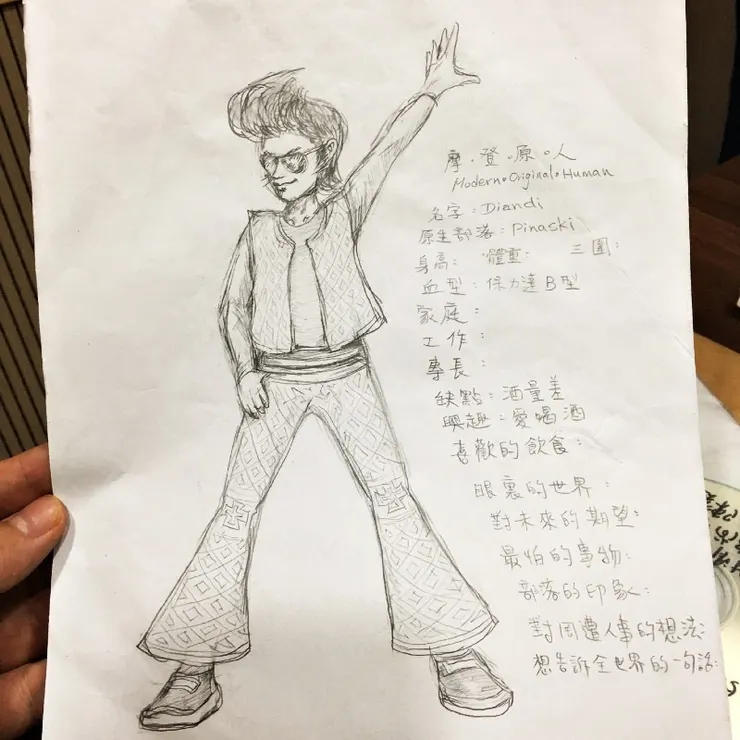 摩·登·原·人
Modern·Original·Human
名字：Diandi
原生部落：Pinaski
身高： 體重： 三圍：
血型：保力達B型
家庭：
工作：
專長：
缺點：酒量差
興趣：愛喝酒
喜歡的飲食：
眼裏的世界：
對未來的期望：
最怕的事物：
部落的印象：
對周遭人事的想法：
想告訴全世界的一句話：